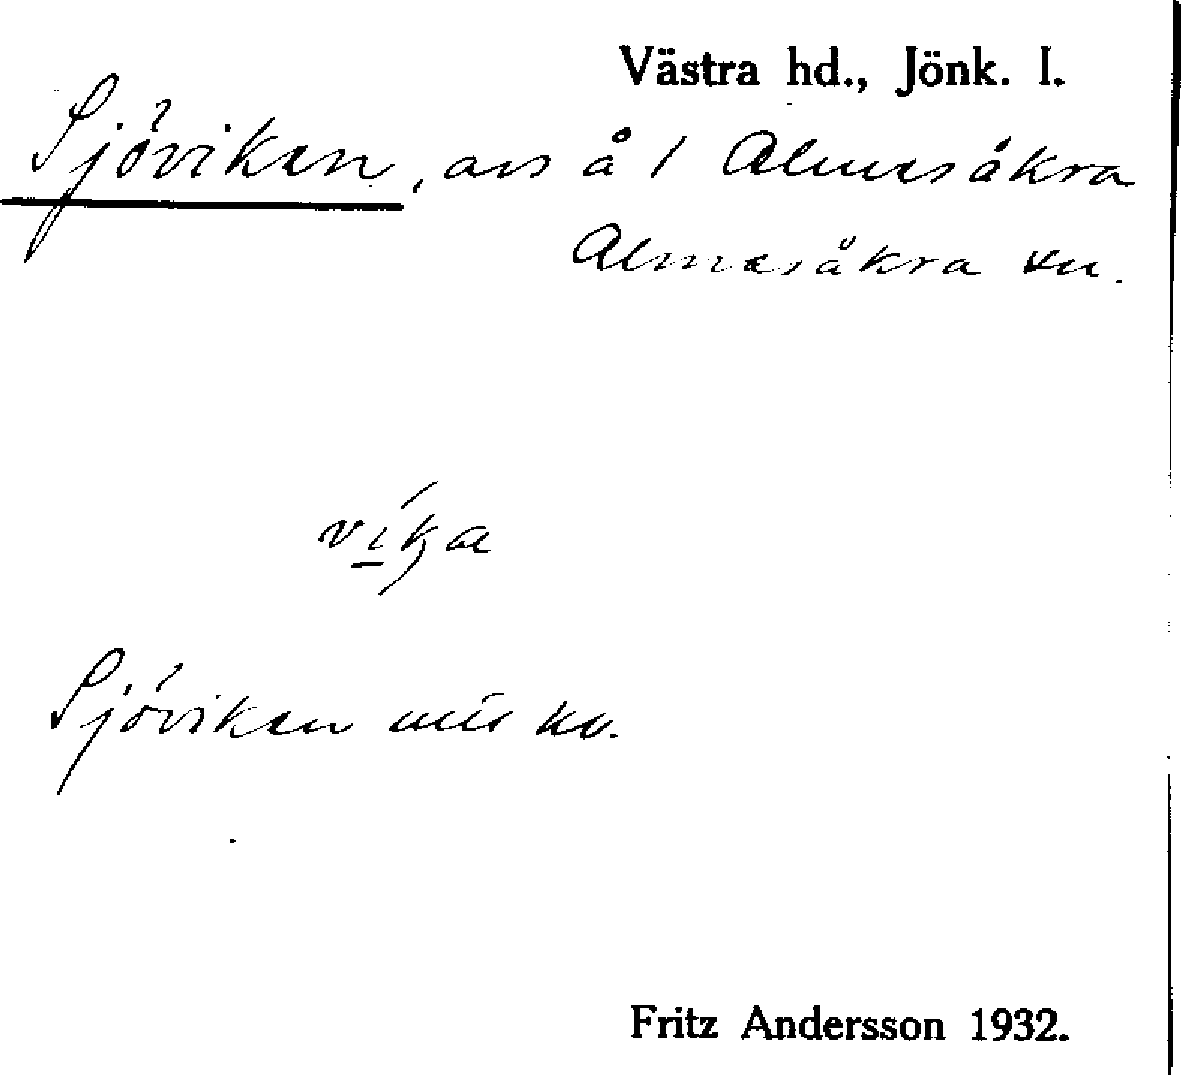 Västra hd., Jönk. l.
Sjöviken, avs å 1 Almesåkra
Almesåkra sn.
Sjöviken
Fritz Andersson 1932.